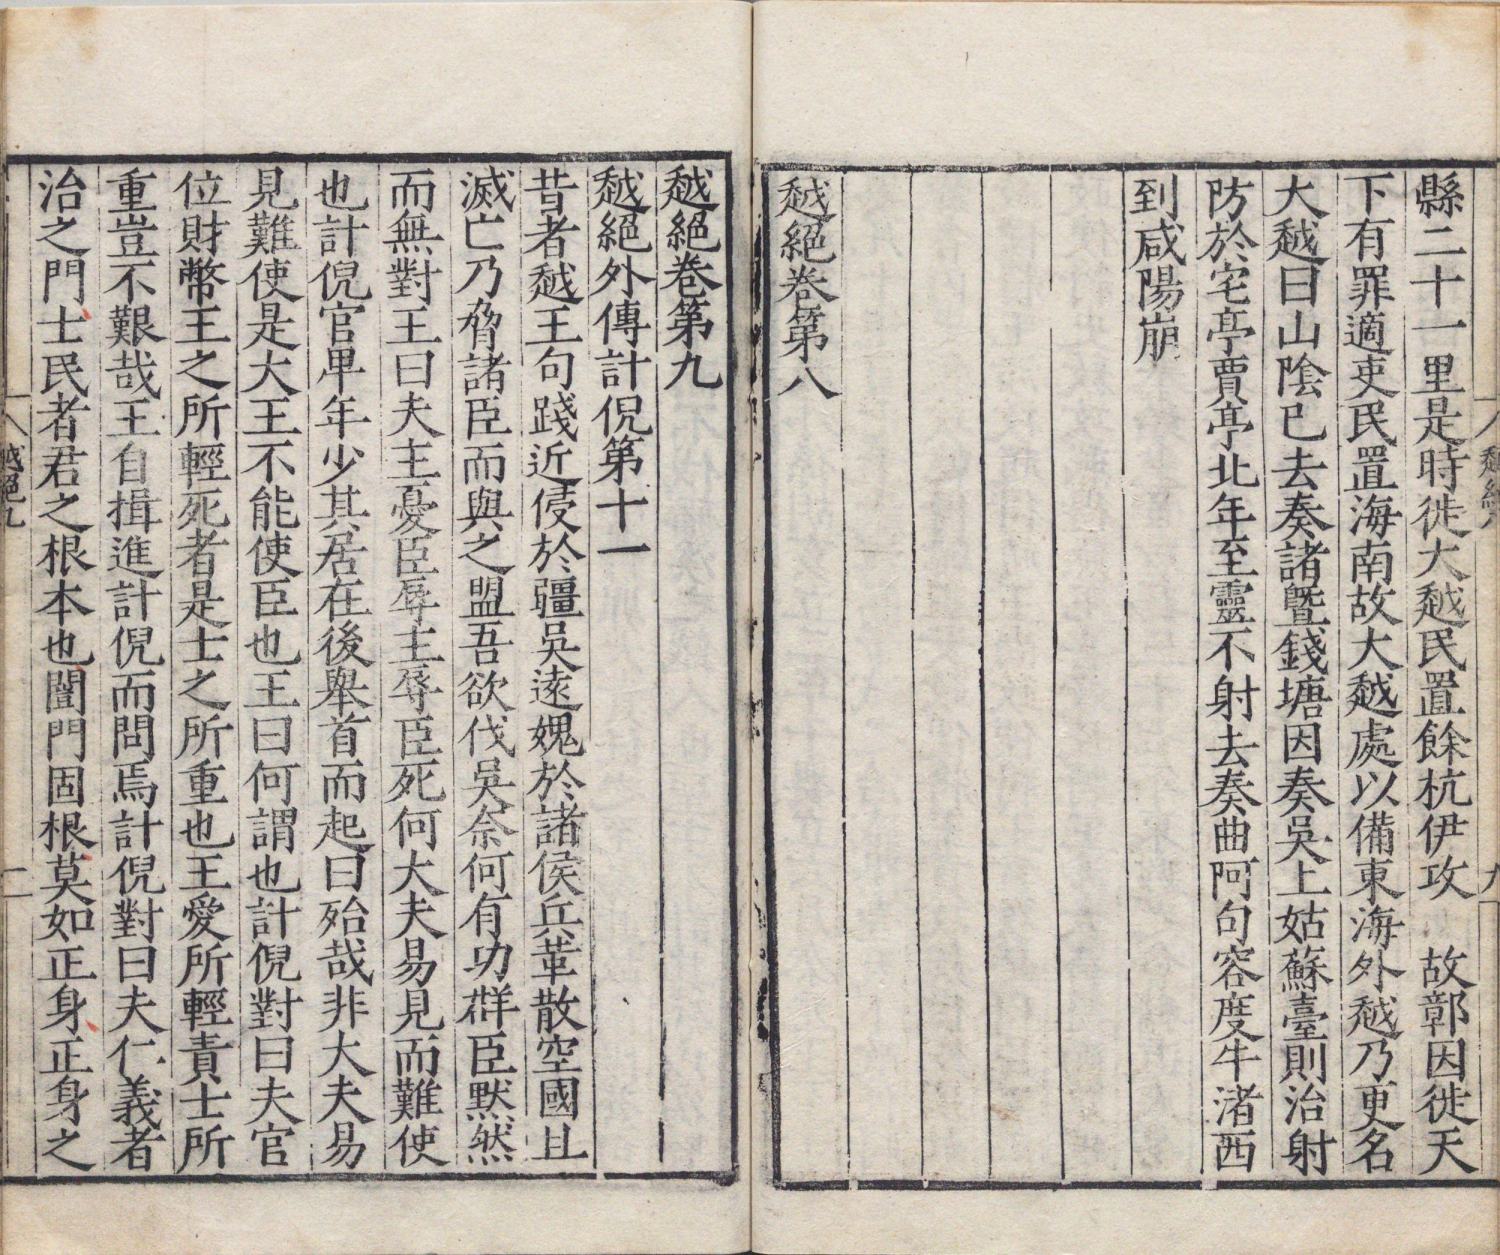 縣二十一里是時徙大越民置餘杭伊攻　故鄣因徙天
下有罪適吏民置海南故大越處以備東海外越乃更名
大越曰山陰已去奏諸暨錢塘因奏吳上姑蘇臺則治射
防於宅亭賈亭北年至靈不射去奏曲阿句容度牛渚西
到咸陽崩
越絕卷第八
越絕卷第九
越絕外傳計倪第十一
昔者越王句踐近侵於疆吳遠媿於諸侯兵革散空國且
滅亡乃脅諸臣而與之盟吾欲伐吳奈何有功群臣默然
而無對王曰夫主憂臣辱主辱臣死何大夫易見而難使
也計倪官卑年少其居在後舉首而起曰殆哉非大夫易
見難使是大王不能使臣也王曰何謂也計倪對曰夫官
位財幣王之所輕死者是士之所重也王愛所輕責士所
重豈不艱哉王自揖進計倪而問焉計倪對曰夫仁義者
治之門士民者君之根本也闓門固根莫如正身正身之
越絕九
二